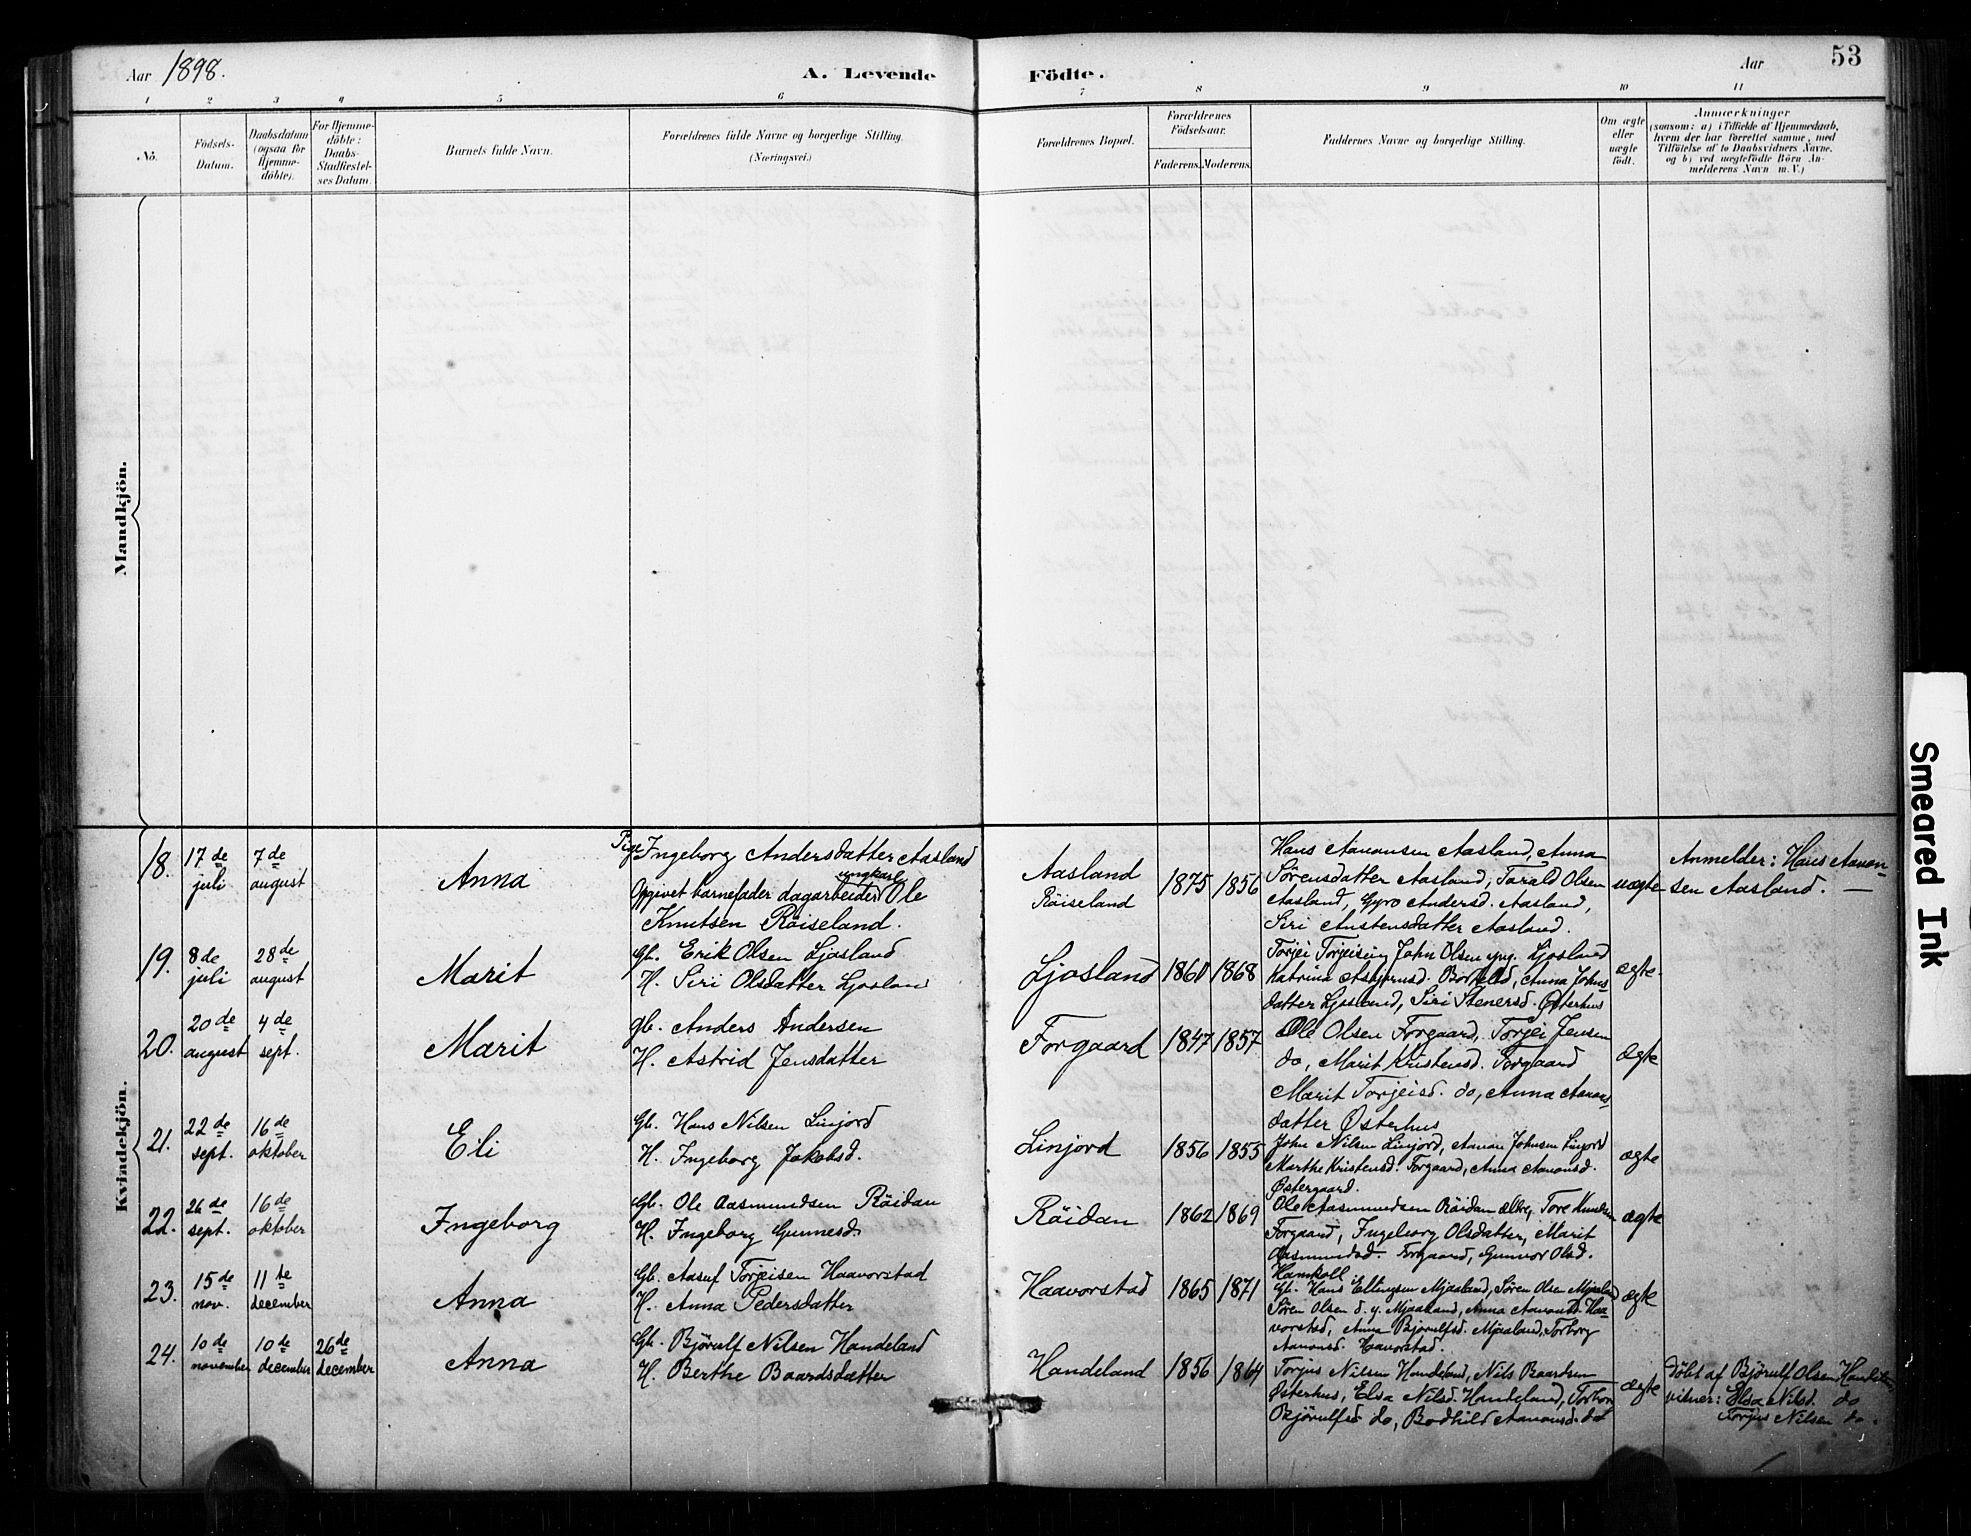 Aar 1898.
A. Levende
Födte.
Aar
53
1
2
3
4
5
6
7
8
9
10
11
No.
Födsels-
Datum.
Daabsdatum
(ogsaa for
Hjemme-
döbte).
For Hjemme-
döbte:
Daabs-
Stadfæstel-
ses Datum.
Barnets fulde Navn.
Forældrenes fulde Navne og borgerlige Stilling.
(Næringsvei.)
Forældrenes Bopæl.
Forældrenes
Födselsaar.
Faderens.
Moderens.
Faddernes Navne og borgerlige Stilling.
Om ægte
eller
uægte
födt.
Anmærkninger
(saasom: a) i Tilfælde af Hjemmedaab,
hvem der har forrettet samme, med
Tilföielse af to Daabsvidners Navne.
og b) ved uægtefödte Börn An-
melderens Navn m. V.)
Mandkjön.
Kvindekjön.
18.
17de
juli
7de
august
Anna
Pige Ingeborg Andersdatter Aasland
Opgivet barnefader dagarbeider ungkarl Ole
Knutsen Röiseland.
Aasland
Röiseland
1875
1856
Hans Aanonsen Aasland, Anna
Sörensdatter Aasland, Tarald Olsen
Aasland, Gyro Andersd. Aasland,
Siri Austensdatter Aasland.
uægte
Anmelder: Hans Aanon-
sen Aasland. —
19.
8de
juli
28de
august
Marit
Gb. Erik Olsen Ljosland
H. Siri Olsdatter Ljosland
Ljosland
1860
1868
Torjei Torjeisen, John Olsen yng. Ljosland
Katrina Asbjörnsd. Ljosland, Anna Johns-
datter Ljosland, Siri Stenersd. Østerhus
ægte.
20.
20de
august
4de
sept.
Marit
gb. Anders Andersen
H. Astrid Jensdatter
Forgaard
1847
1857
Ole Olsen Forgaard, Torjei Jensen
do, Marit Kristensd. Forgaard
Marit Torjeisd. do, Anna Aanons-
datter Østerhus
ægte
21.
22de
sept.
16de
oktober
Eli
Gb. Hans Nilsen Linjord
H. Ingeborg Jakobsd.
Linjord
1856
1855
John Nilsen Linjord, Aanon Johnsen Linjord
Marthe Kristensd. Forgaard, Anna Aanonsd.
Østergaard.
ægte
22.
26de
sept.
16de
oktober
Ingeborg
Gb. Ole Aasmundsen Röidan
H. Ingeborg Gunnesd.
Röidan
1862
1869
Ole Aasmundsen Röidan ældre, Tore Knudsen
Forgaard, Ingeborg Olsdatter, Marit
Aasmundsd. Forgaard, Gunvor Olsd.
Hamkoll.
ægte
23.
15de
nov.
11te
december
Anna
Gb. Aasuf Torjeisen Haavorstad
H. Anna Pedersdatter
Haavorstad
1865
1871
Gb. Hans Ellingsen Mjaaland, Sören Olsen Mjaaland
Sören Olsen d. y. Mjaaland, Anna Aanonsd. Haa-
vorstad, Anna Bjorulfsd. Mjaaland, Torborg
Aanonsd. Haavorstad.
ægte
24.
10de
november
10de
december
26de
december
Anna
Gb. Björulf Nilsen Handeland
H. Berthe Baardsdatter
Handeland
1856
1864
Torjus Nilsen Handeland, Nils Baardsen
Østerhus, Elsa Nilsd. Handeland, Torbor
Björulfsd do, Bodhild Aanonsd. do
ægte
Döbt af Björulf Olsen Handeland
vidner: Elsa Nilsd. do
Torjus Nilsen do.
Smeared Ink